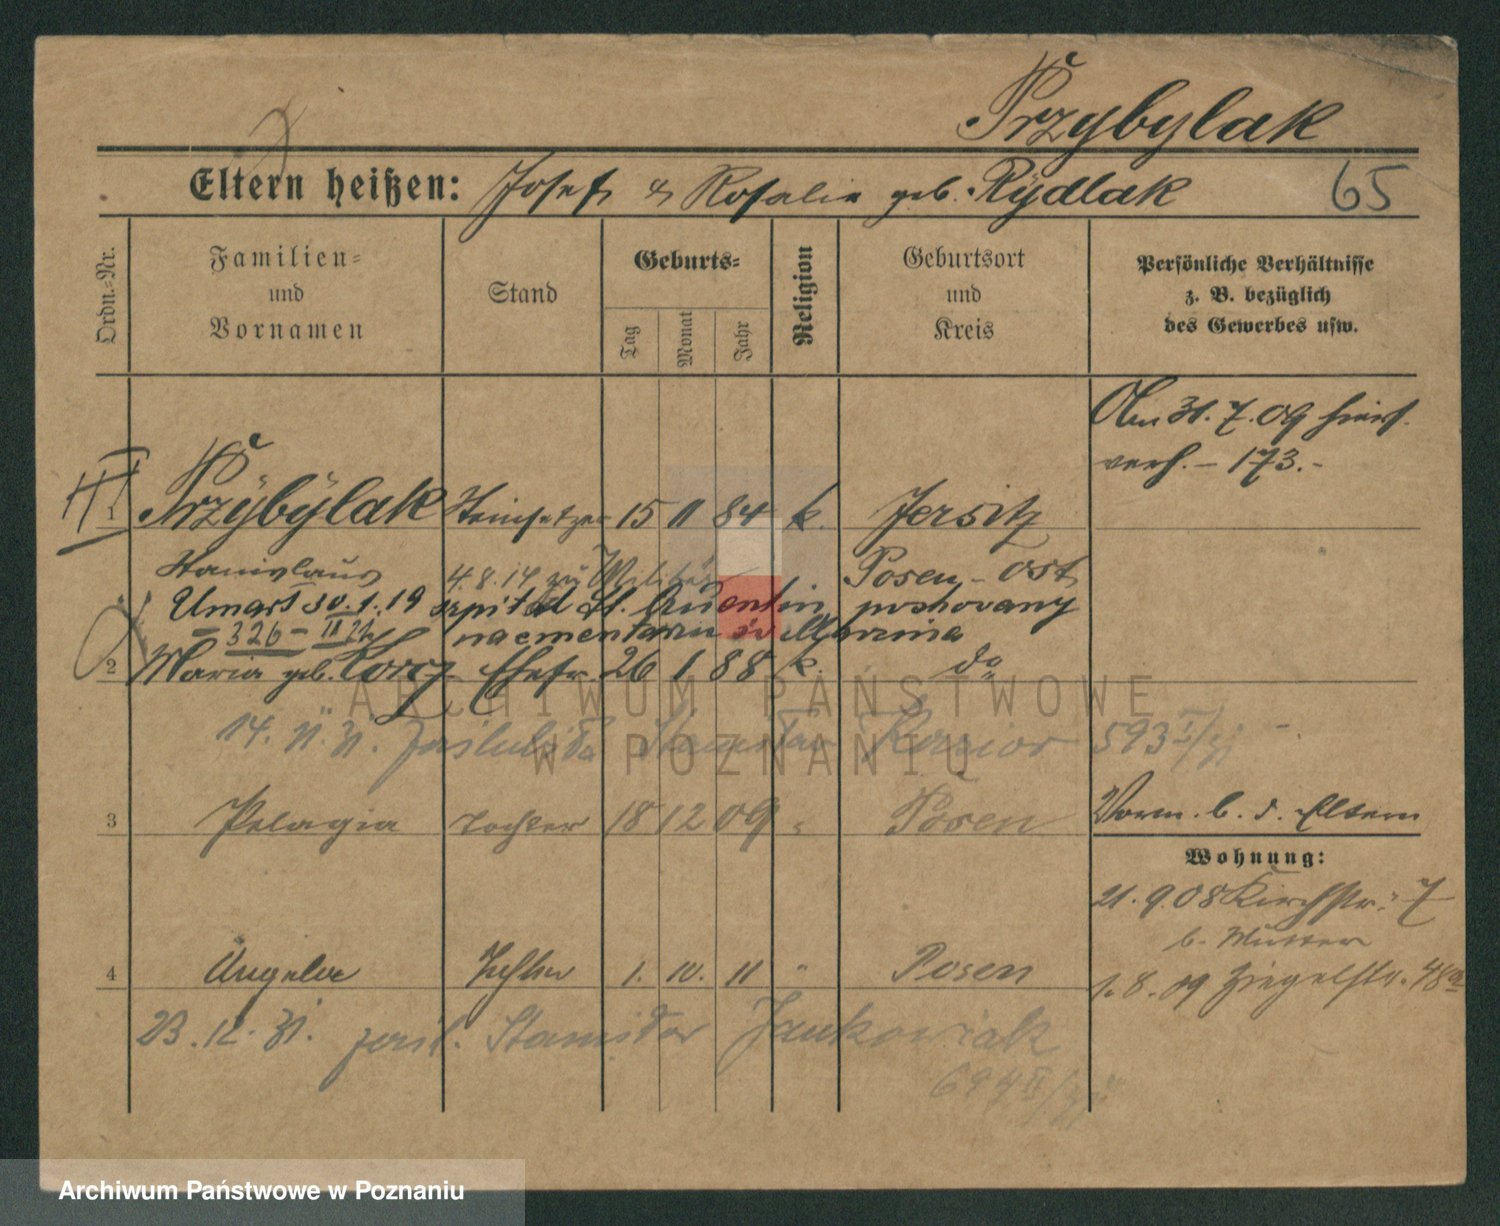 Przybylak
Eltern heißen: Josef & Rosalie geb. Rÿdlak 65
Ordn.=Nr.
Familien=
und
Vornamen
Stand
Geburts=
Tag
Monat
Jahr
Religion
Geburtsort
und
Kreis
Persönliche Verhältnisse
z. B. bezüglich
des Gewerbes usw.
Am 31.7.09 hier
verh. – 173. –
1 Przÿbÿlak Steinsetzer 15 11 84 k. Jersitz
Stanislaus 4.8.14 zu Militär Posen - Ost
Umarł 30.1.19 szpital St. Quentin pochowany
– 326 – na cmentarzu
2 Maria geb. Ehefr. 26 1 88 k. do
14. 11. 31. zaślubiła Stanisław 593
3 Pelagia Tochter 18 12 09 " Posen
Vorm. b. d. Eltern
Wohnung:
21.9.08 Kirchstr. 7
b. Mutter
1.8.09 Ziegelstr. 48a
4 Angela Tochter 1. 10. 11 " Posen
23.12.31. zaśl. Stanisław Jankowiak
ARCHIWUM PAŃSTWOWE
W POZNANIU
Archiwum Państwowe w Poznaniu